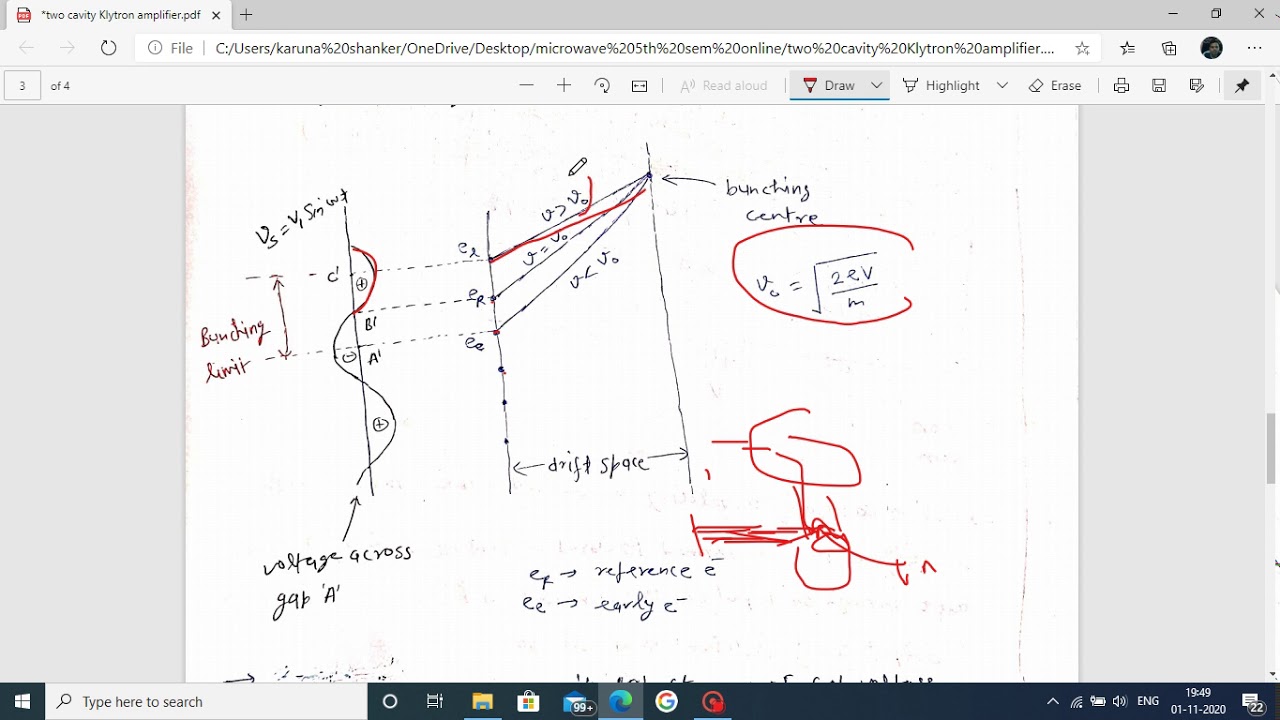 *two cavity Klytron amplifier.pdf
File
C:/Users/karuna%20shanker/OneDrive/Desktop/microwave%205th%20sem%20online/two%20cavity%20Klytron%20amplifier....
3 of 4
Read aloud
Draw
Highlight
Erase
Vs = V1 Sin ωt
bunching
centre
v > v0
v = v0
v < v0
v0 = √(2eV/m)
el
eR
ee
C'
B'
A'
+
−
+
Bunching
limit
←drift space→
voltage across
gap 'A'
er → reference e−
ee → early e−
Type here to search
99+
ENG
19:49
01-11-2020
22